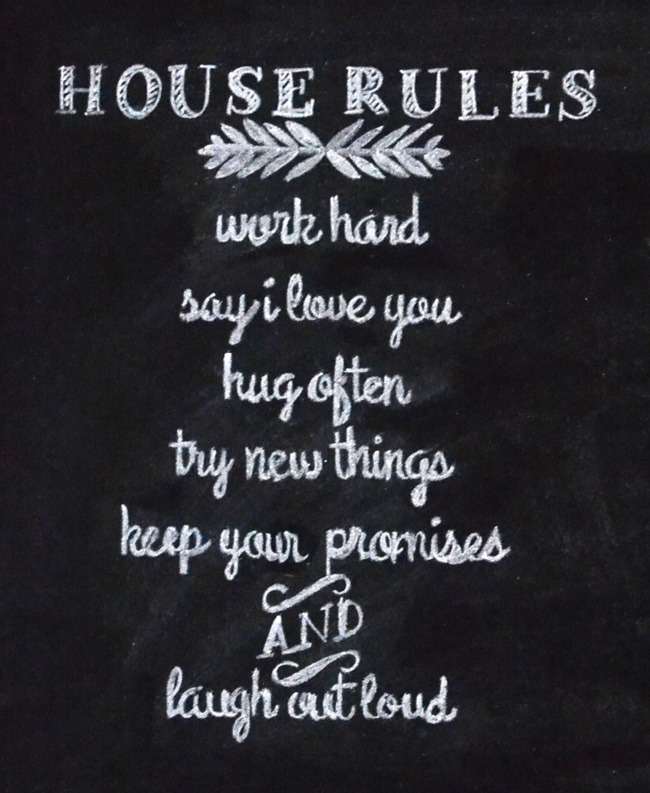 HOUSE RULES
work hard
say i love you
hug often
try new things
keep your promises
AND
laugh out loud